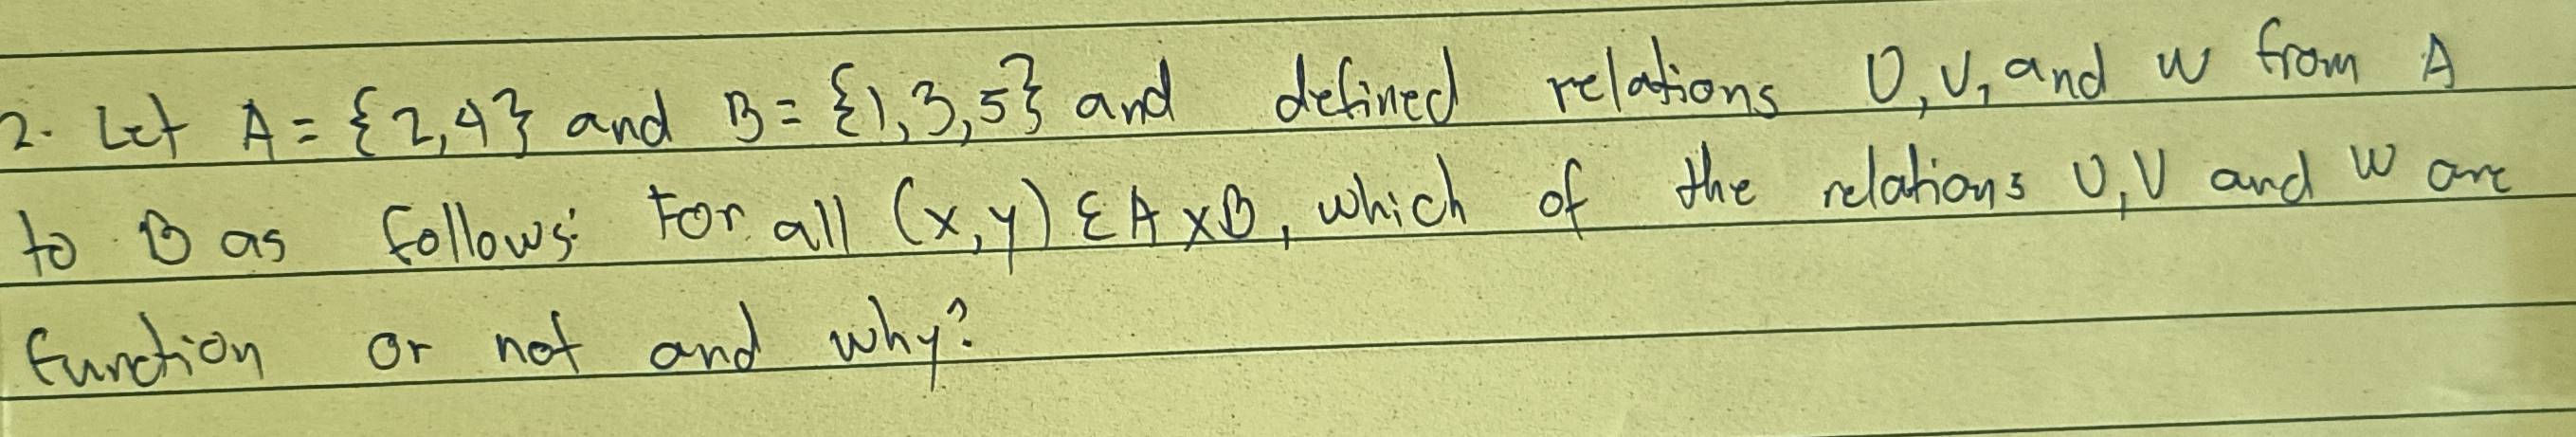 2. Let A = {2,4} and B = {1,3,5} and defined relations U, V, and W from A
to B as follows: For all (x,y) ∈ A x B, which of the relations U, V and W are
function or not and why?